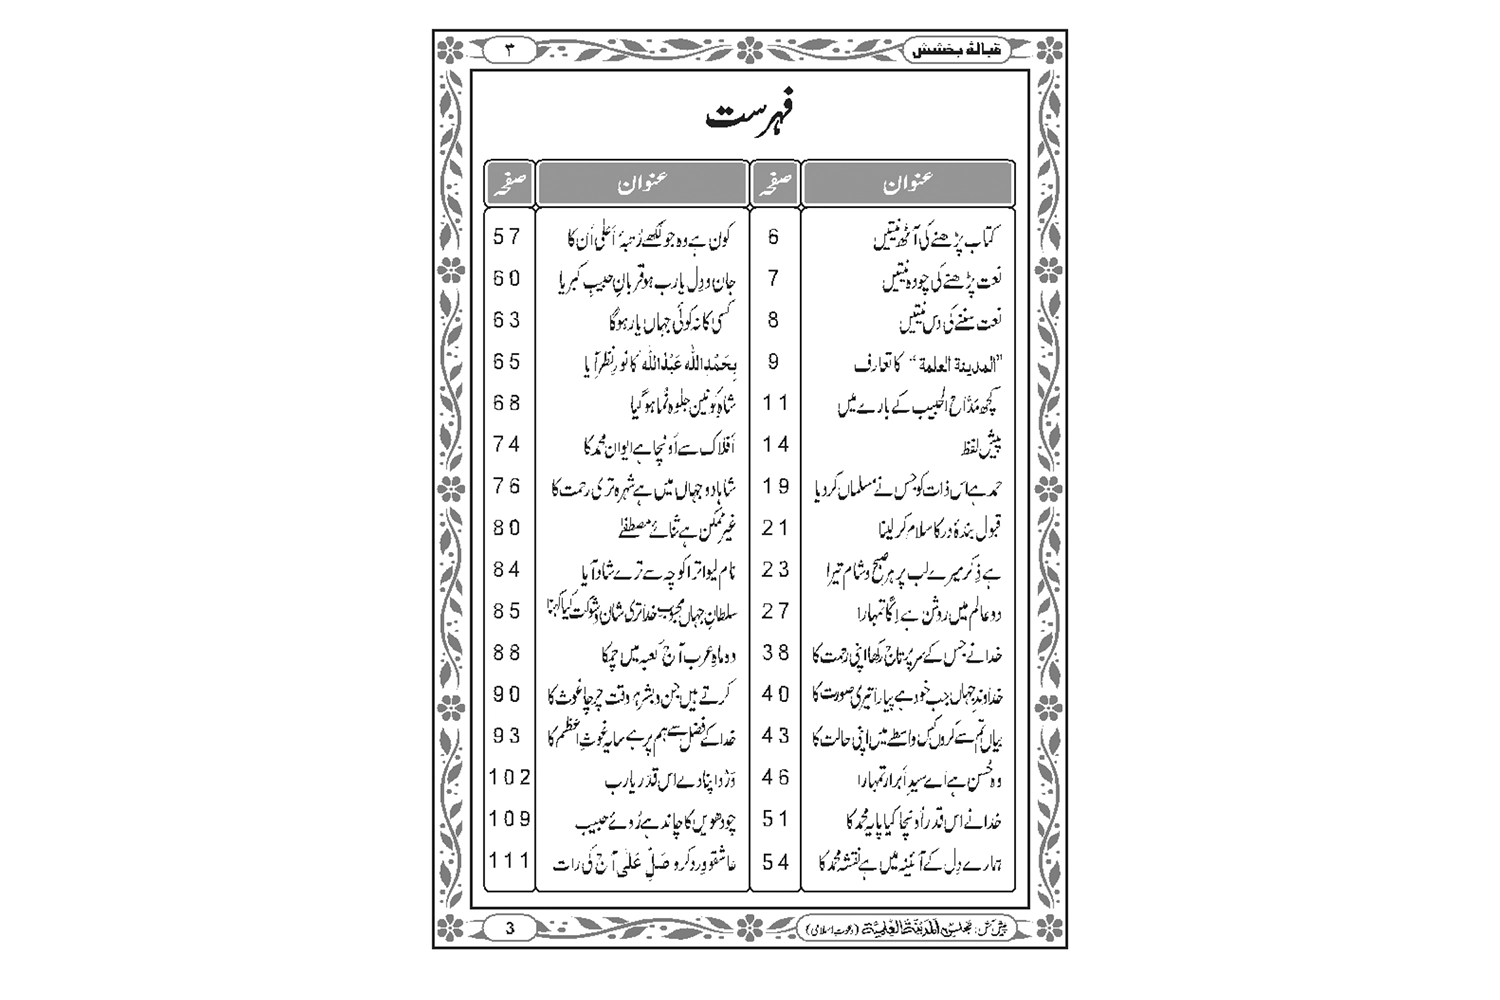 قبالۂ بخشش
۳
فہرست
عنوان صفحہ عنوان صفحہ
کتاب پڑھنے کی آٹھ نیتیں 6 کون ہے وہ جو لکھے رُتبۂ اَعلٰی اُن کا 57
نعت پڑھنے کی چودہ نیتیں 7 جان و دِل یارب ہو قربانِ حبیبِ کبریا 60
نعت سننے کی دس نیتیں 8 کسی کا نہ کوئی جہاں یار ہوگا 63
”المدینۃ العلمۃ“ کا تعارف 9 بِحَمْدِاللہ عَبْدُاللہ کا نورِ نظر آیا 65
کچھ مَدّاحُ الحبیب کے بارے میں 11 شاہِ کونین جلوہ نُما ہوگیا 68
پیش لفظ 14 اَفلاک سے اُونچا ہے ایوان محمد کا 74
حمد ہے اس ذات کو جس نے مسلماں کردیا 19 شاہا دو جہاں میں ہے شہرہ تری رحمت کا 76
قبول بندۂ در کا سلام کرلینا 21 غیر ممکن ہے ثنائے مصطفٰے 80
ہے ذِکر میرے لب پر ہر صبح و شام تیرا 23 نام لیوا ترا کوچہ سے ترے شاد آیا 84
دو عالم میں روشن ہے اِکّا تمہارا 27 سلطانِ جہاں محبوبِ خدا تری شان و شوکت کیا کہنا 85
خدا نے جس کے سر پر تاج رکھا اپنی رحمت کا 38 وہ ماہِ عرب آج کعبہ میں چمکا 88
خداوندِ جہاں جب خود ہے پیارا تیری صورت کا 40 کرتے ہیں جن و بشر ہر وقت چرچا غوث کا 90
بیاں تم سے کروں کس واسطے میں اپنی حالت کا 43 خدا کے فضل سے ہم پر ہے سایہ غوثِ اعظم کا 93
وہ حُسن ہے اے سیدِ اَبرار تمہارا 46 وَرْد اپنا دے اس قدر یارب 102
خدا نے اس قدر اُونچا کیا پایہ محمد کا 51 چودھویں کا چاند ہے رُوئے حبیب 109
ہمارے دِل کے آئینہ میں ہے نقشہ محمد کا 54 عاشقو وِرد کرو صَلِّ عَلٰی آج کی رات 111
پیش کش: مجلس اَلْمَدِیْنَۃُ الْعِلْمِیَّۃ (دعوتِ اسلامی)
3